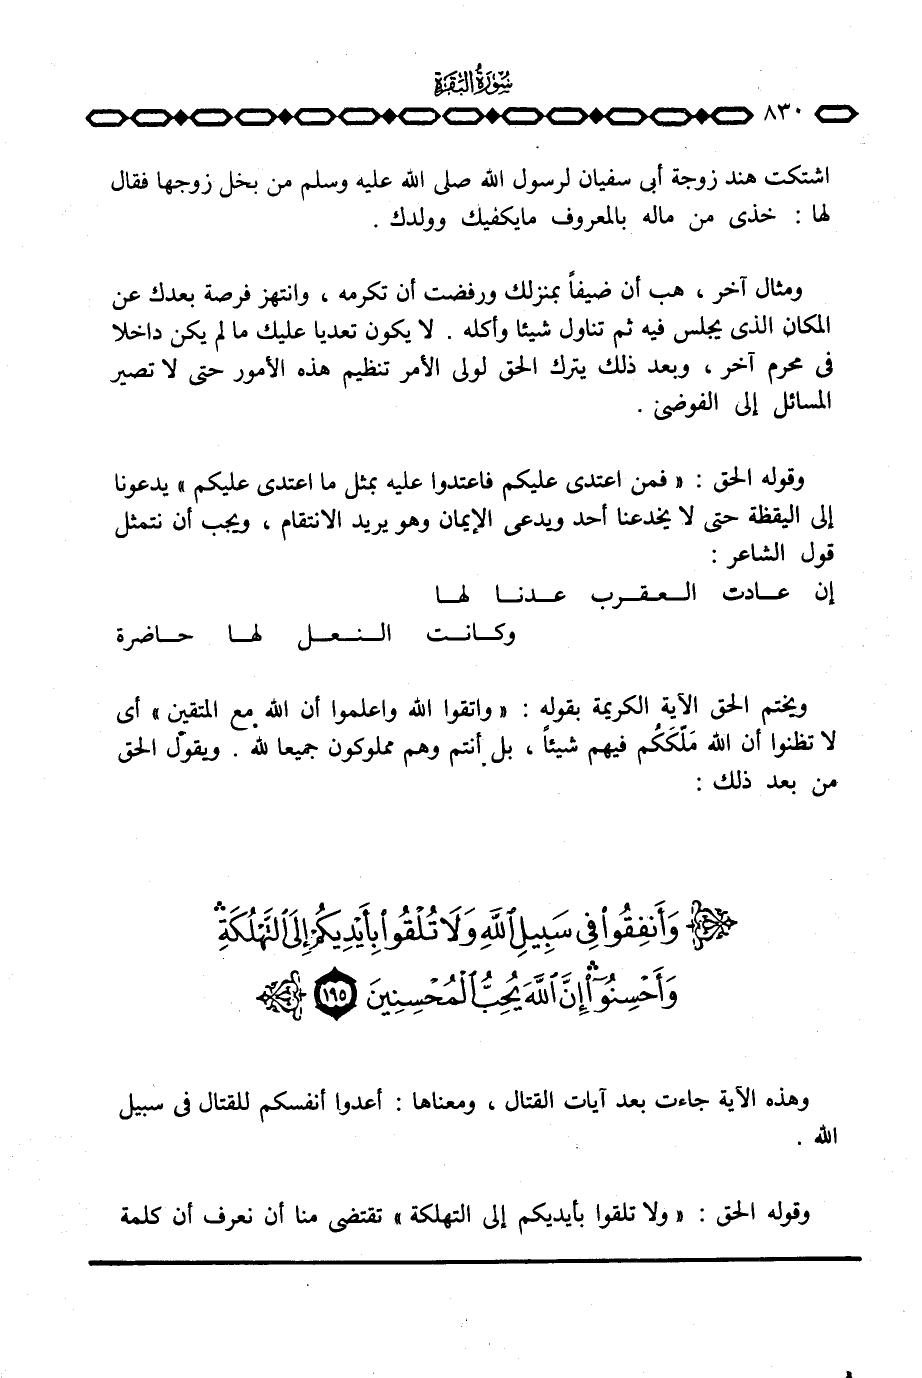 سورة البقرة
٨٣٠
اشتكت هند زوجة أبى سفيان لرسول الله صلى الله عليه وسلم من بخل زوجها فقال
لها : خذى من ماله بالمعروف مايكفيك وولدك .
ومثال آخر ، هب أن ضيفاً بمنزلك ورفضت أن تكرمه ، وانتهز فرصة بعدك عن
المكان الذى يجلس فيه ثم تناول شيئا وأكله . لا يكون تعديا عليك ما لم يكن داخلا
فى محرم آخر ، وبعد ذلك يترك الحق لولى الأمر تنظيم هذه الأمور حتى لا تصير
المسائل إلى الفوضى .
وقوله الحق : « فمن اعتدى عليكم فاعتدوا عليه بمثل ما اعتدى عليكم » يدعونا
إلى اليقظة حتى لا يخدعنا أحد ويدعى الإيمان وهو يريد الانتقام ، ويجب أن نتمثل
قول الشاعر :
إن عـــادت الـــعـــقـــرب عـــدنـــا لهـــا
وكـــانـــت الـــنـــعـــل لهـــا حـــاضرة
ويختم الحق الآية الكريمة بقوله : « واتقوا الله واعلموا أن الله مع المتقين » أى
لا تظنوا أن الله مَلّكَكُم فيهم شيئاً ، بل أنتم وهم مملوكون جميعا لله . ويقول الحق
من بعد ذلك :
وَأَنفِقُوا۟ فِى سَبِيلِ ٱللَّهِ وَلَا تُلْقُوا۟ بِأَيْدِيكُمْ إِلَى ٱلتَّهْلُكَةِ ۛ
وَأَحْسِنُوٓا۟ ۛ إِنَّ ٱللَّهَ يُحِبُّ ٱلْمُحْسِنِينَ ١٩٥
وهذه الآية جاءت بعد آيات القتال ، ومعناها : أعدوا أنفسكم للقتال فى سبيل
الله .
وقوله الحق : « ولا تلقوا بأيديكم إلى التهلكة » تقتضى منا أن نعرف أن كلمة